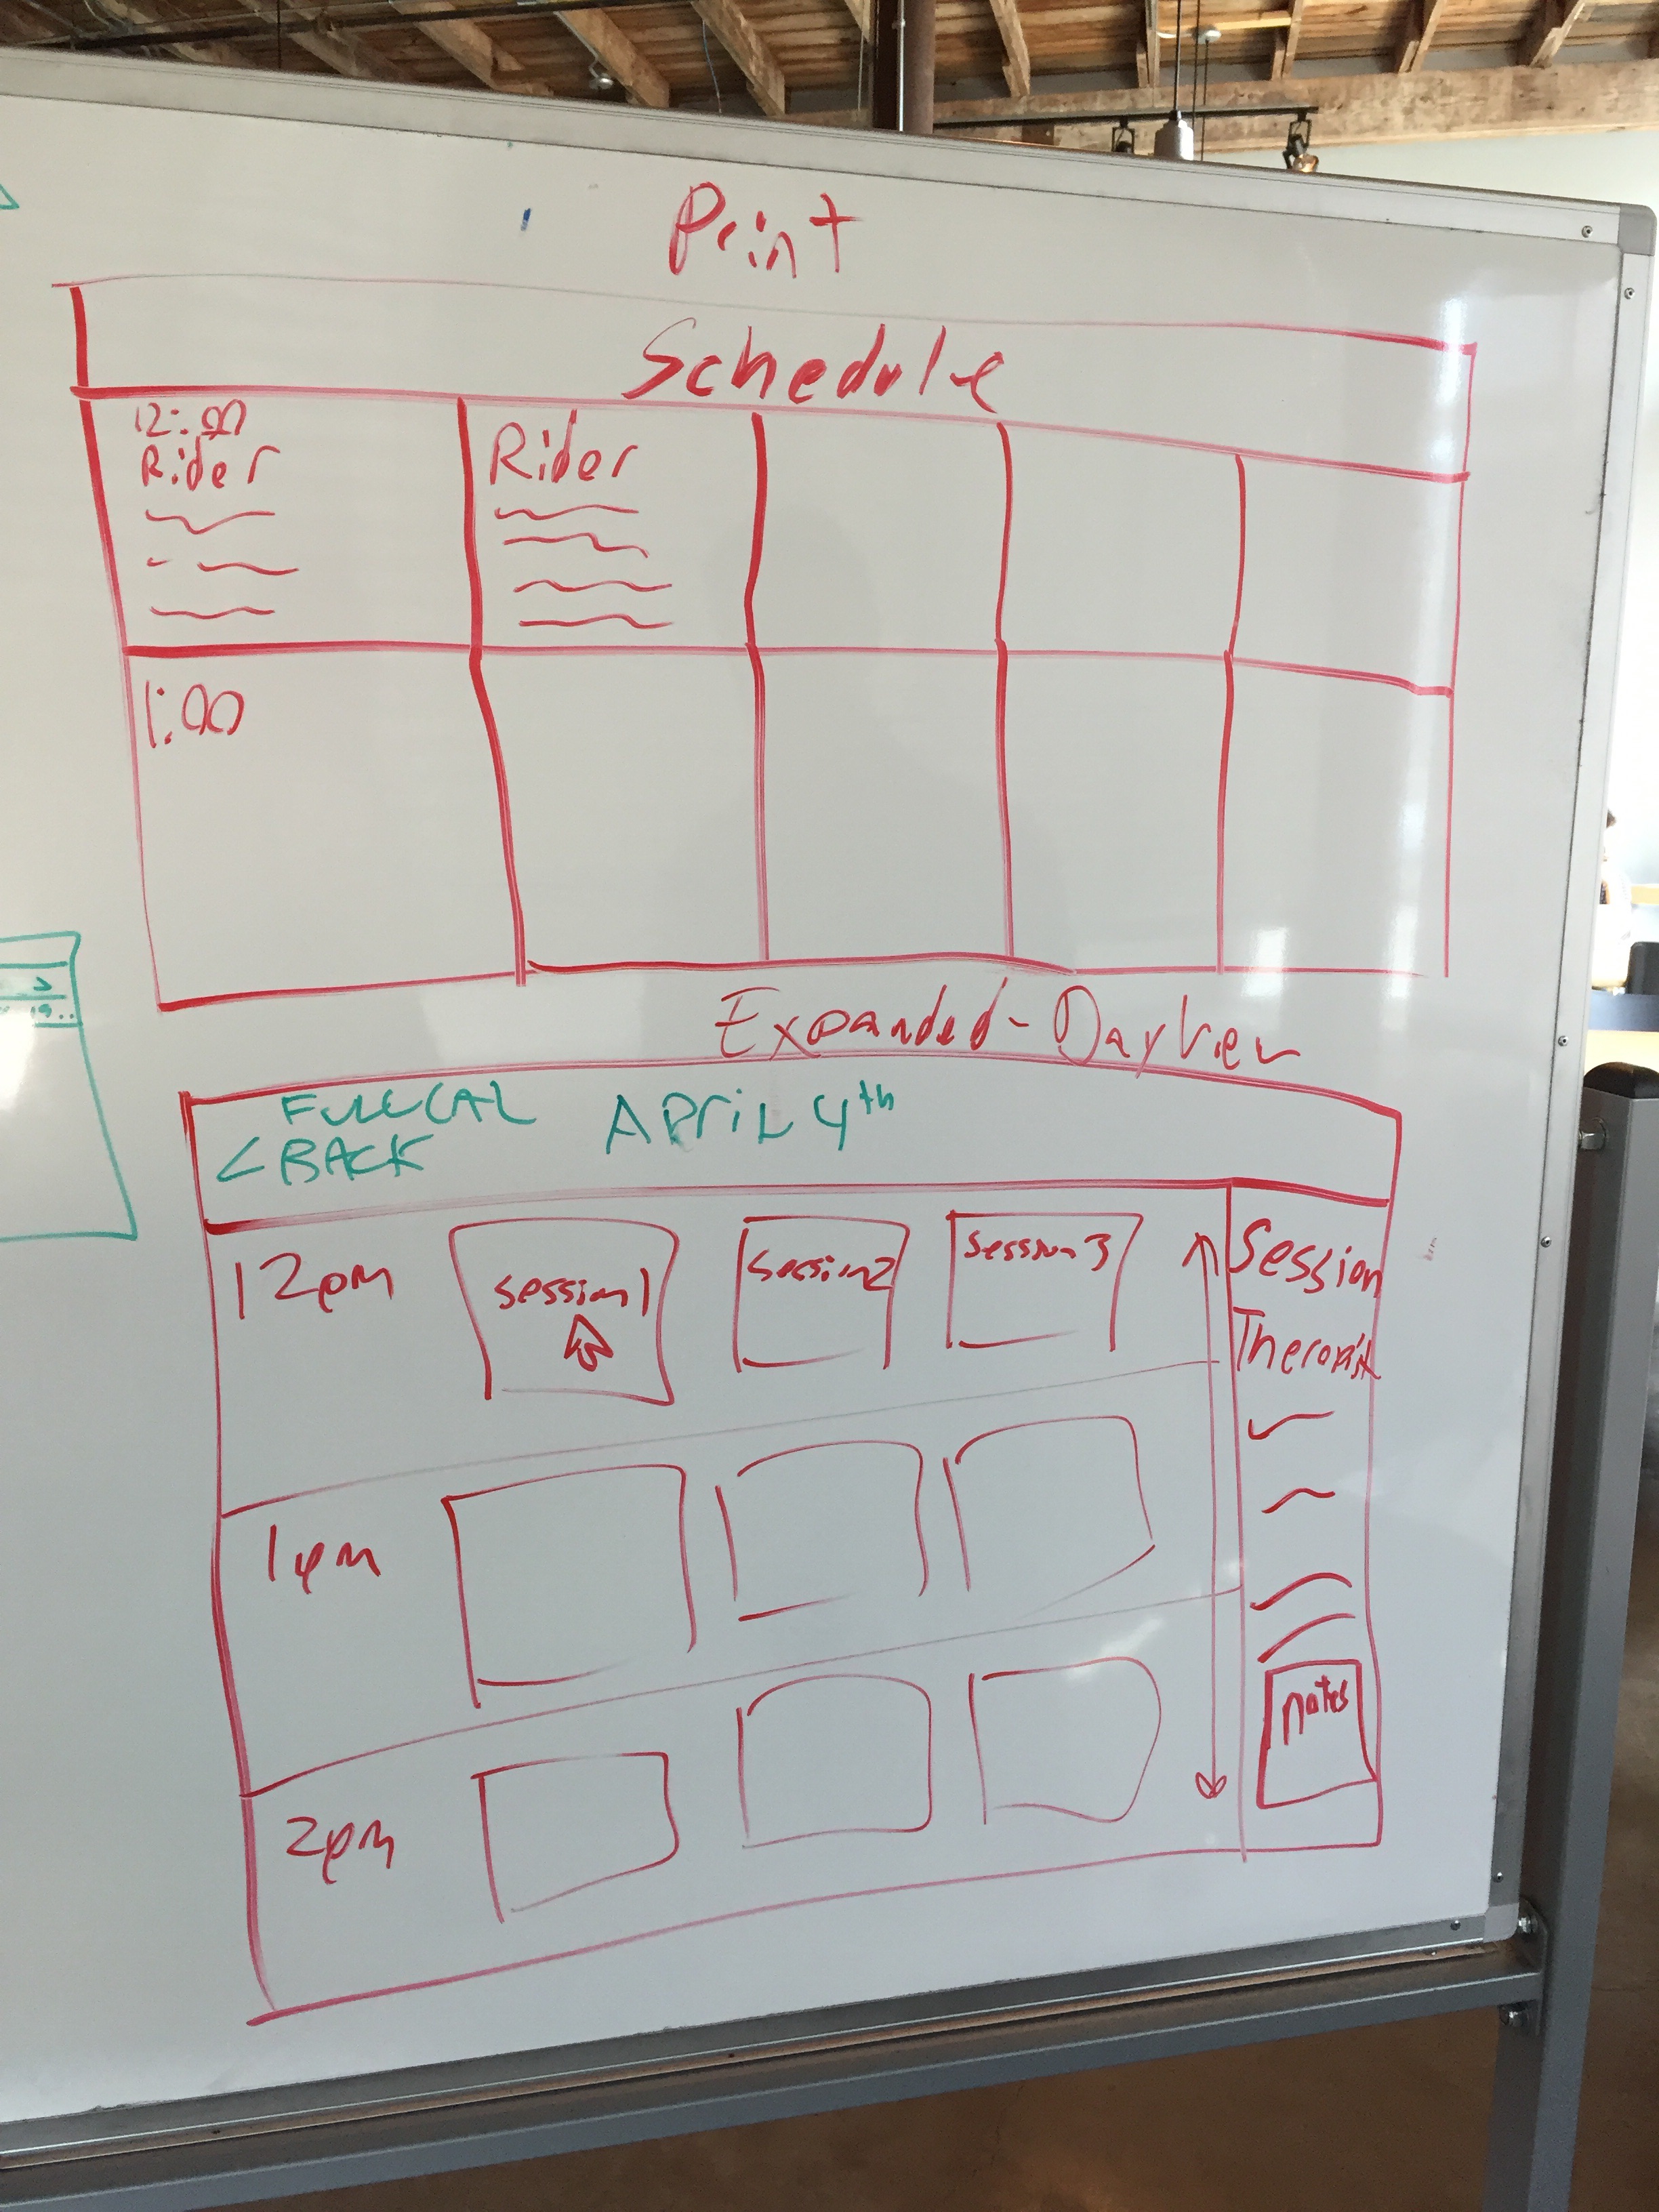 Print
Schedule
12:00
Rider
Rider
1:00
Expanded-Day View
FULL CAL
< BACK
APRIL 4th
12pm
session 1
Session 2
Session 3
Session
Therapist
1pm
2pm
notes